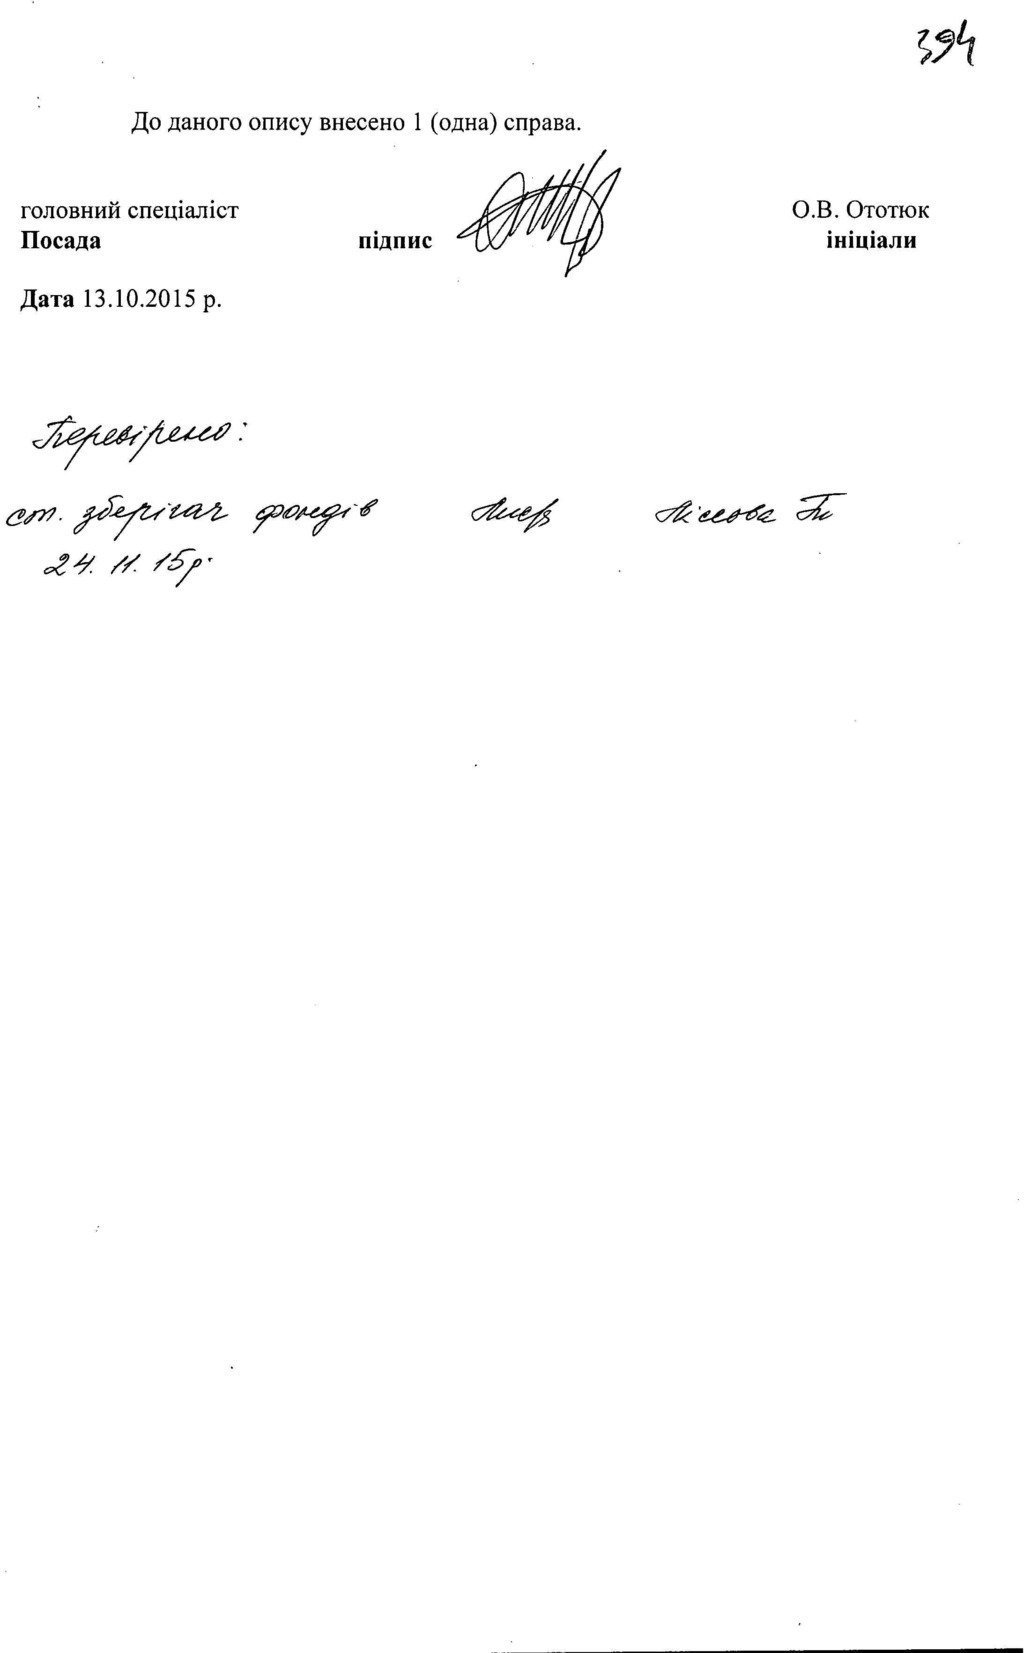 394
До даного опису внесено 1 (одна) справа.
головний спеціаліст О.В. Ототюк
Посада підпис ініціали
Дата 13.10.2015 р.
Перевірено:
ст. зберігач фондів
24. 11. 15р.